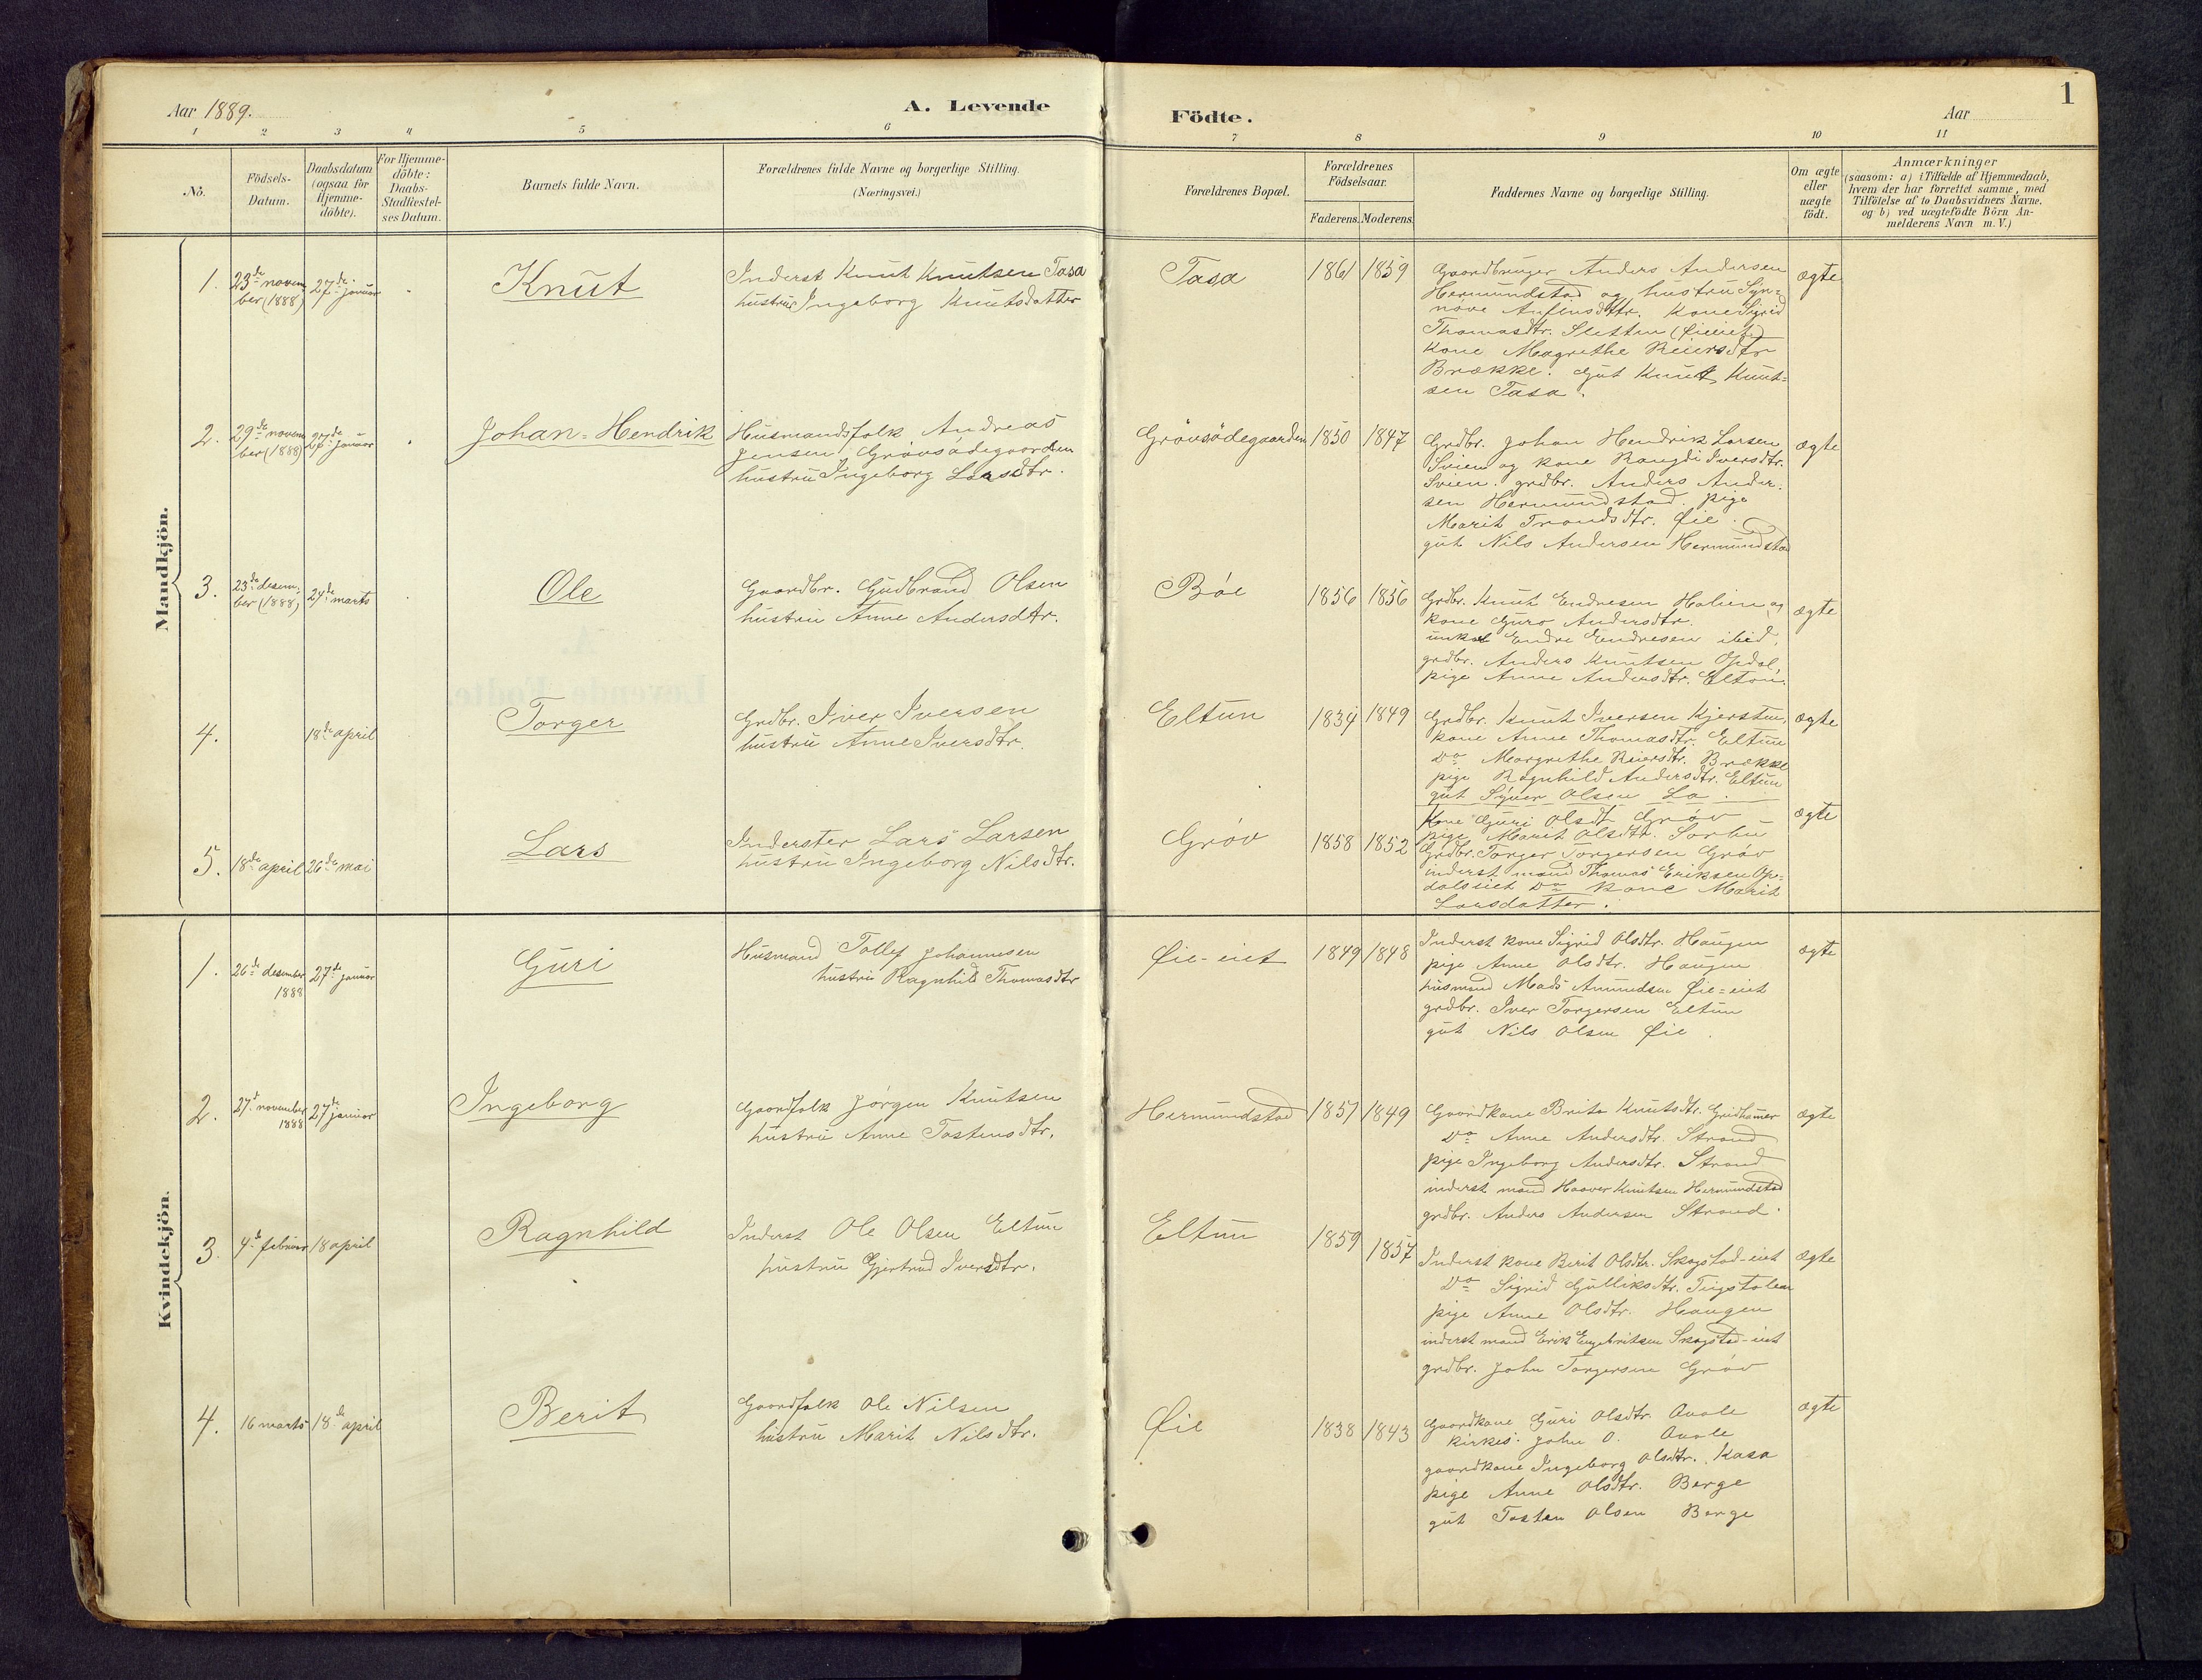 Aar 1889.
A. Levende
Födte.
Aar
1
1 2 3 4 5 6 7 8 9 10 11
No.
Födsels-
Datum.
Daabsdatum
(ogsaa for
Hjemme-
döbte).
For Hjemme-
döbte:
Daabs-
Stadfæstel-
ses Datum.
Barnets fulde Navn.
Forældrenes fulde Navne og borgerlige Stilling.
(Næringsvei.)
Forældrenes Bopæl.
Forældrenes
Födselsaar.
Faderens. Moderens.
Faddernes Navne og borgerlige Stilling.
Om ægte
eller
uægte
födt.
Anmærkninger
(saasom: a) i Tilfælde af Hjemmedaab,
hvem der har forrettet samme, med
Tilföielse af to Daabsvidners Navne.
og b) ved uægtefödte Börn An-
melderens Navn m. V.)
Mandkjön.
1.
23de novem
ber (1888)
27de januar
Knut
Inderst Knut Knutsen Tasa
hustru Ingeborg Knutsdatter
Tasa
1861 1859
Gaardbruger Anders Andersen
Hermundstad og hustru Syn-
növe Anfinsdttr. Kone Sigrid
Thomasdtr. Sletten (Øieiet)
Kone Magrethe Reiersdtr
Brække. Gut Knut Knut-
sen Tasa.
ægte
2.
29de novem
ber (1888)
27de januar
Johan-Hendrik
Husmandsfolk Andreas
Jensen Grøvsødegaarden
hustru Ingeborg Larsdtr.
Grøvsødegaarden
1850 1847
Grdbr. Johan Hendrik Larsen
Svien og kone Rangdi Iversdtr.
Svien. grdbr. Anders Ander-
sen Hermundstad. pige
Marit Trondsdtr. Øie.
gut Nils Andersen Hermundstad
ægte
3.
23de desem-
ber (1888)
24de marts
Ole
Gaardbr. Gudbrand Olsen
hustru Anne Andersdtr.
Bøe
1856 1856
Grdbr. Knut Endresen Halien og
kone Guro Andersdtr.
unkar Endre Endresen ibid,
grdbr. Anders Knutsen Opdal,
pige Anne Andersdtr. Elton.
ægte
4.
18de april
Torger
Grdbr. Iver Iversen
hustru Anne Iversdtr.
Eltun
1834 1849
Grdbr. Knut Iversen Kjersten,
kone Anne Thomasdtr. Eltun
Do Margrethe Reiersdtr. Brække
pige Ragnhild Andersdtr. Eltun
gut Syver Olsen Lo.
ægte
5.
18de april
26de mai
Lars
Inderster Lars Larsen
hustru Ingeborg Nilsdtr.
Grøv
1858 1852
Kone Guri Olsdt Grøv
pige Marit Olsdtr. Sørbu
Grdbr. Torger Torgersen Grøv
inderst mand Thomas Eriksen Op-
dalseiet Do kone Marit
Larsdatter.
ægte
Kvindekjön.
1.
26de desember
1888
27de januar
Guri
Husmand Tollef Johannesen
hustru Ragnhild Thomasdtr
Øie-eiet
1849 1848
Inderst kone Sigrid Olsdtr. Haugen
pige Anne Olsdtr. Haugen
husmand Mads Amundsen Øie-eiet
grdbr. Iver Torgersen Eltun
gut Nils Olsen Øie.
ægte
2.
27d november
1888
27de januar
Ingeborg
Gaardfolk Jörgen Knutsen
hustru Anne Tostensdtr.
Hermundstad
1851 1849
Gaardkone Brita Knutsdtr. Gridhamer
Do Anne Andersdtr. Strand
pige Ingeborg Andersdtr. Strand
inderst mand Haaver Knutsen Hermundstad
grdbr. Anders Andersen Strand.
ægte
3.
4de februar
18 april
Ragnhild
Inderst Ole Olsen Eltun
hustru Gjertrud Iversdtr.
Eltun
1859 1857
Inderst kone Berit Olsdtr. Skogstad-eiet
Do Sigrid Gulliksdtr. Tingstolen
pige Anne Olsdtr. Haugen
inderst mand Erik Engebritsen Skogstad-eiet
grdbr. John Torgersen Grøv
ægte
4.
16 marts
18de april
Berit
Gaardfolk Ole Nilsen
hustru Marit Nilsdtr.
Øie
1838 1843
Gaardkone Guri Olsdtr. Qvale
kirkes. John O. Qvale
gaardkone Ingeborg Olsdtr. Kasa
pige Anne Olsdtr. Berge
gut Tosten Olsen Berge
ægte